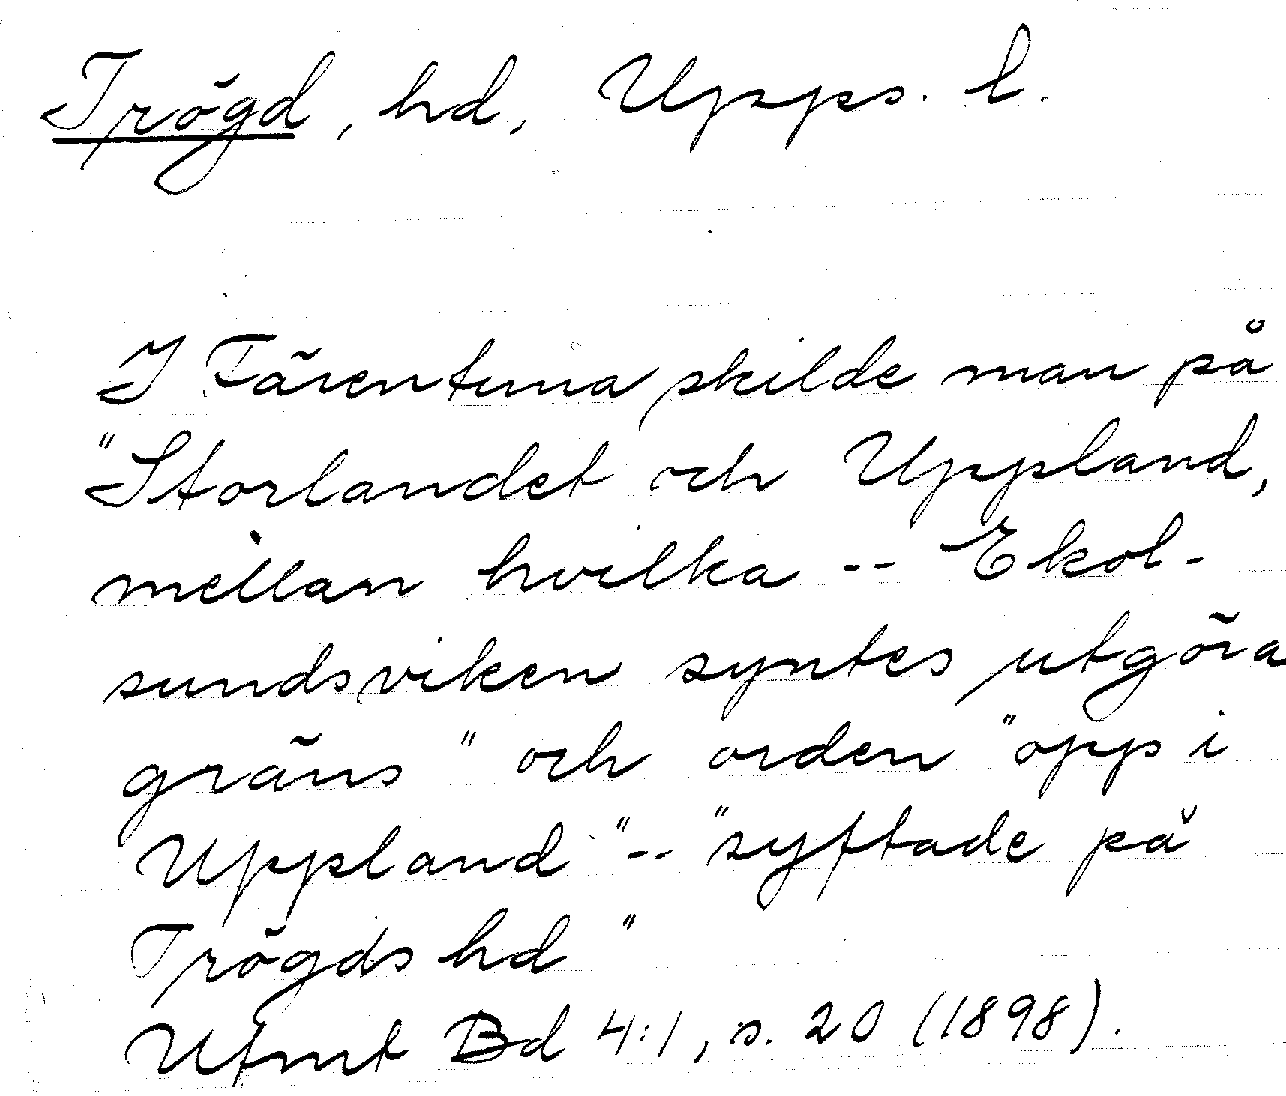 Trögd, hd, Upps. l.
I Färentuna skilde man på
"Storlandet och Uppland,
mellan hvilka -- Ekol-
sundsviken syntes utgöra
gräns" och orden "opp i
Uppland"-- "syftade på
Trögds hd"
Ufmt Bd 4:1, s. 20 (1898).